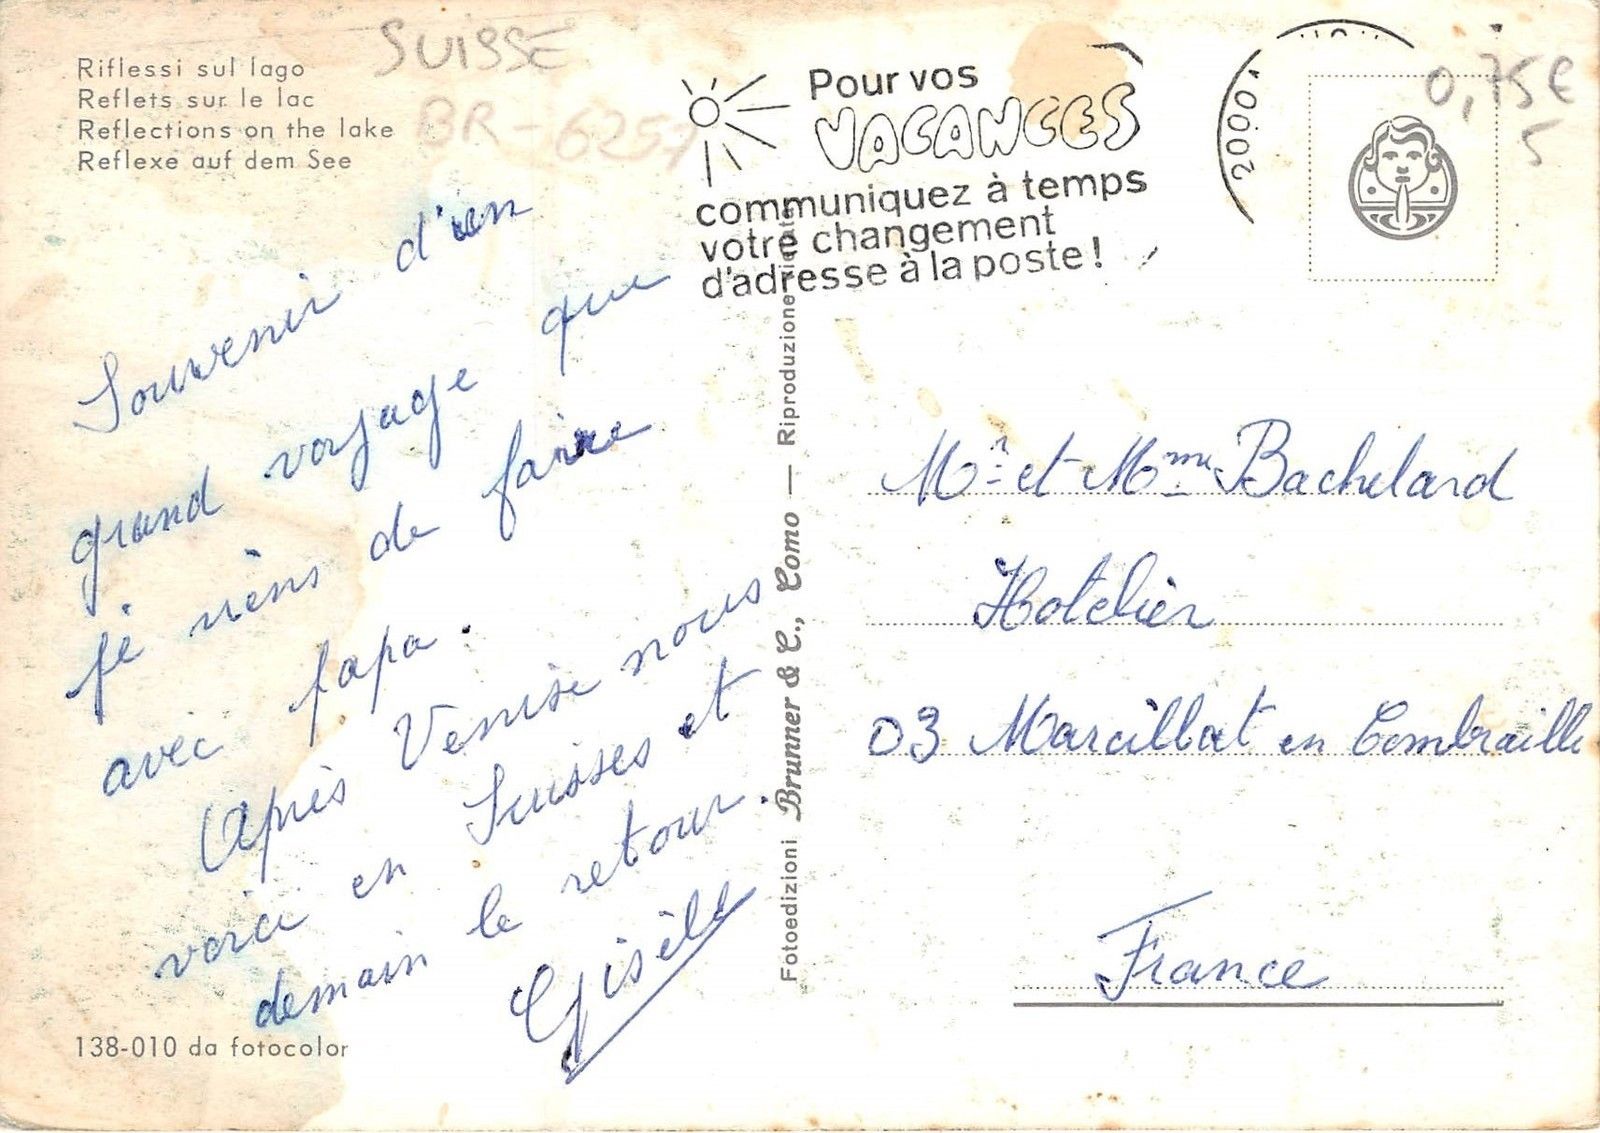 Riflessi sul lago
Reflets sur le lac
Reflections on the lake
Reflexe auf dem See
SUISSE
BR-6257
Souvenir d'un
grand voyage que
je viens de faire
avec papa.
Après Venise nous
voici en Suisses et
demain le retour.
Gisèle
138-010 da fotocolor
Fotoedizioni Brunner & C., Como — Riproduzione
Pour vos
VACANCES
communiquez à temps
votre changement
d'adresse à la poste!
20000
0,75€
5
Mr et Mme Bachelard
Hotelier
03 Marcillat en Combraille
France